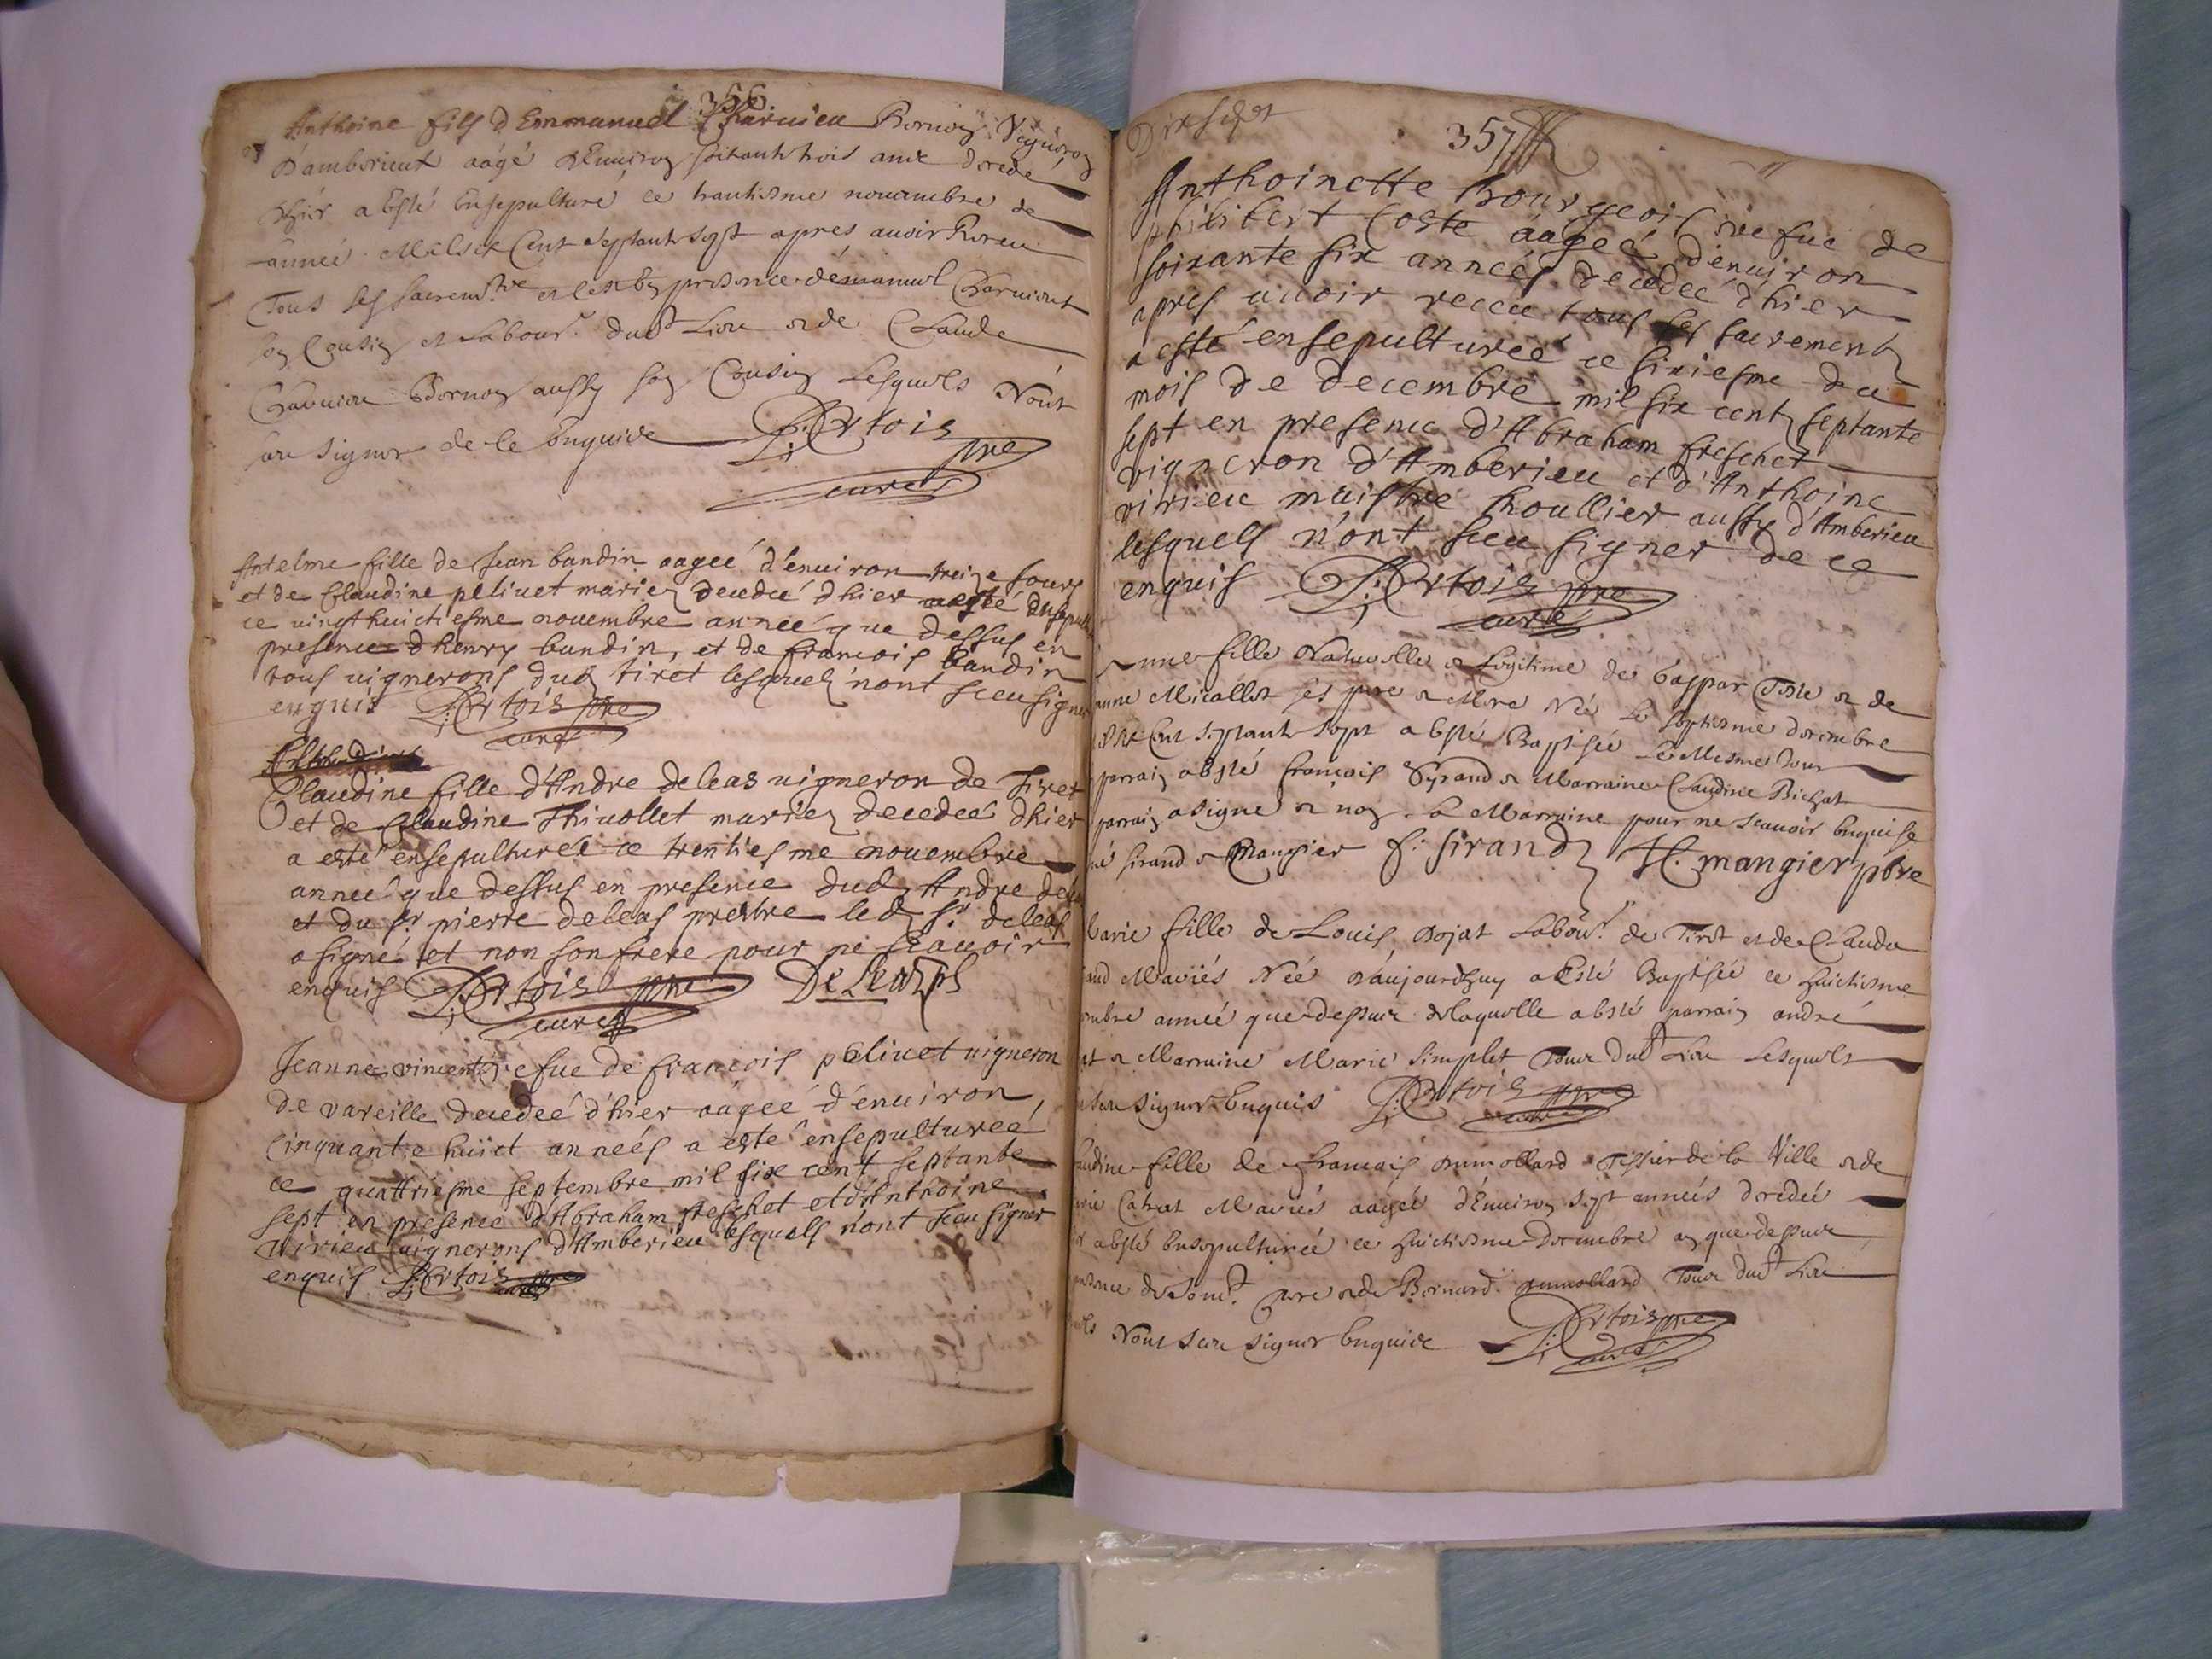 356
Anthoine fils d Emmanuel Charuieu Bornoz Vigneron
D'amberieux aagé d'Enuiron soixante trois ans decedé
d'hier a Esté Ensepulturé ce trantiesme nouambre de
année Mil six Cent septante sept apres auoir Receu
Tous ses sacremts en presence d'émanuel Charuieux
son Cousin et Labourr dud Lieu et de Claude
Charuieu Bornoz aussy son Cousin Lesquels N'ont
sceu signer de ce Enquis P: Ertois pre
curé
Antelme fille de Jean bandin aageé d'enuiron treize jours
et de Claudine peliuet mariez decedeé d'hier a esté ensepult
ce uingt huictiesme nouembre anneé que dessus en
presence d'henry bandin, et de francois bandin
tous uignerons dud tiret lesquelz n'ont sceu signer
enquis P: Ertois pre
curé
Claudine fille d'Andre deleas uigneron de Tiret
et de Claudine Thiuollet mariez decedeé d'hier
a esté ensepultureé ce trentiesme nouembre
anneé que dessus en presence dud Andre deleas
et du sr pierre deleas prestre led sr deleas
a signé et non son frere pour ne scauoir
enquis P: Ertois pre Deleas pb
curé
Jeanne vincent vefue de francois peliuet uigneron
de vareille decedeé d'hier aageé d'enuiron
cinquante huict anneés a esté ensepultureé
ce quattriesme septembre mil six cent septante
sept en presence d'Abraham freschet et d'Anthoine
virieu uignerons d'Amberieu lesquels n'ont sceu signer
enquis P: Ertois pre
curé
Dix sept
357
Anthoinette bourgeois vefue de
philibert Coste aageé d'enuiron
soixante six anneés decedeé d'hier
apres auoir receu tous les sacrements
a esté ensepultureé ce sixiesme du
mois de decembre mil six cent septante
sept en presence d'Abraham freschet
vigneron d'Amberieu et d'Anthoine
virieu maistre houllier aussy d'Amberieu
lesquels n'ont sceu signer de ce
enquis P: Ertois pre
curé
Anne fille Naturelle et Legitime de Gaspar Teste et de
anne Micallet ses pere et Mere Née Le septiesme decembre
il six Cent septante sept a Esté Baptisée Le Mesme Jour
parrain a Esté francois Syrand et Marraine Claudine Bichat
parrain a signe et non La Marraine pour ne scauoir Enquise
né sirand et Mangier f. sirand H. mangier pbre
Marie fille de Louis Dojat Labourr de Tiret et de Clauda
and Mariés Née d'aujourdhuy a Esté Baptisée ce huictiesme
embre année que dessus de laquelle a Esté parrain andré
at et Marraine Marie Simplet Tous dud Lieu Lesquels
sceu signer Enquis P: Ertois pre
curé
audine fille de francois Dumollard Tissier de la Ville et de
Catrat Mariés aageé d'Enuiron sept années decedeé
ier a Esté Ensepultureé ce huictiesme decembre an que dessus
presence de sond. pere et de Bernard Dumollard Tous dud Lieu
quels N'ont sceu signer Enquis P: Ertois pre
curé